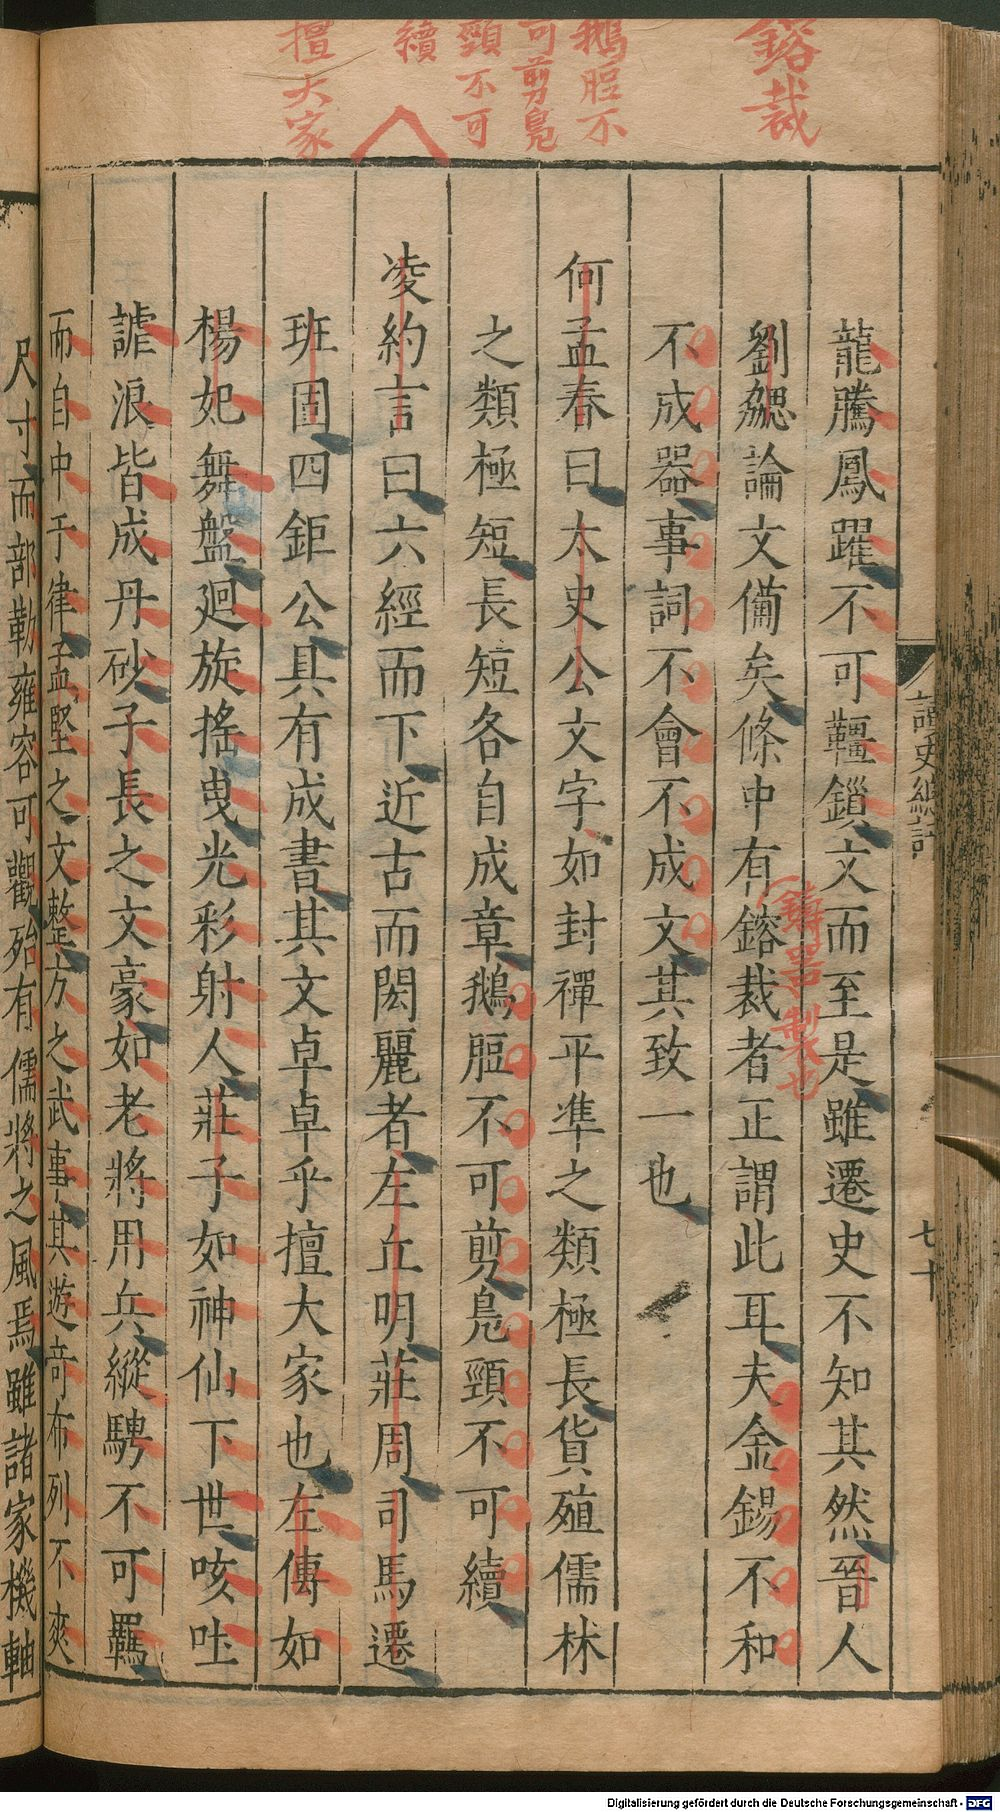 鎔裁
鵝脰不
可剪鳧
頸不可
續
擅大家
龍騰鳳躍不可韁鎖文而至是雖遷史不知其然晉人
劉勰論文備矣條中有鎔裁者正謂此耳夫金錫不和
鑄器製也
不成器事詞不會不成文其致一也
何孟春曰太史公文字如封禪平準之類極長貨殖儒林
之類極短長短各自成章鵝脰不可剪鳧頸不可續
凌約言曰六經而下近古而閎麗者左丘明莊周司馬遷
班固四鉅公具有成書其文卓卓乎擅大家也左傳如
楊妃舞盤廻旋搖曳光彩射人莊子如神仙下世咳吐
謔浪皆成丹砂子長之文豪如老將用兵縱騁不可羈
而自中于律孟堅之文整方之武事其遊奇布列不爽
尺寸而部勒雍容可觀殆有儒將之風焉雖諸家機軸
七十
Digitalisierung gefördert durch die Deutsche Forschungsgemeinschaft - DFG